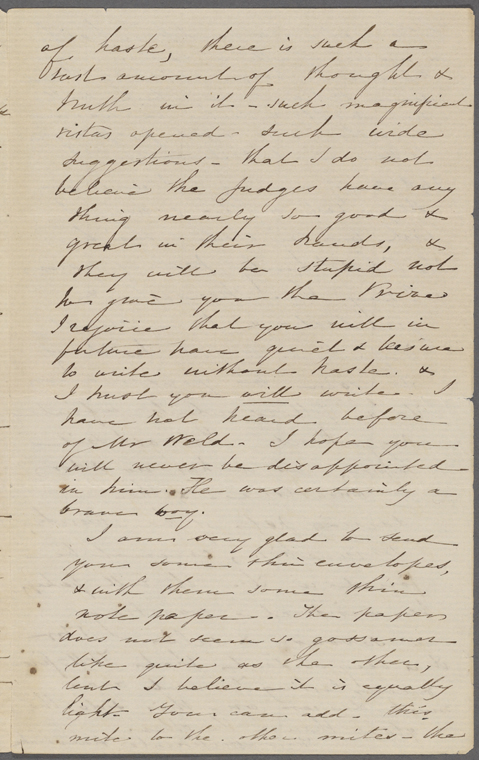 of haste, there is such a
vast amount of thought &
truth in it - such magnificent
vistas opened - such wide
suggestions - that I do not
believe the Judges have any
thing nearly so good &
great in their hands, &
they will be stupid not
to give you the Prize
I rejoice that you will in
future have quiet & leisure
to write without haste. &
I trust you will write. I
have not heard before
of Mr Weld. I hope you
will never be disappointed
in him. He was certainly a
brave boy.
I am very glad to send
you some thin envelopes,
& with them some thin
note paper. The paper
does not seem so gossamer
like quite as the other,
but I believe it is equally
light. You can add - this
mite to the other mites - the